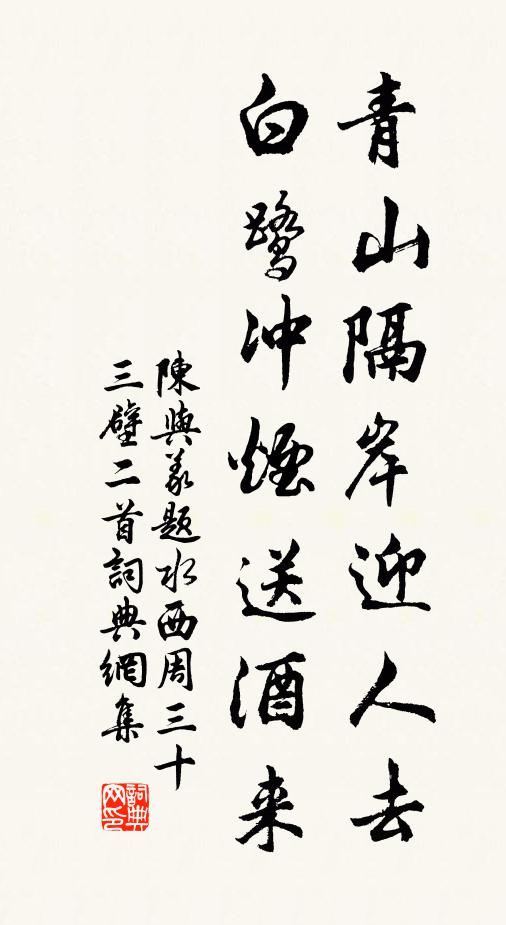 青山隔岸迎人去
白鹭冲煙送酒来
陳與義题水西周三十
三壁二首詞典網集
詞典
网印